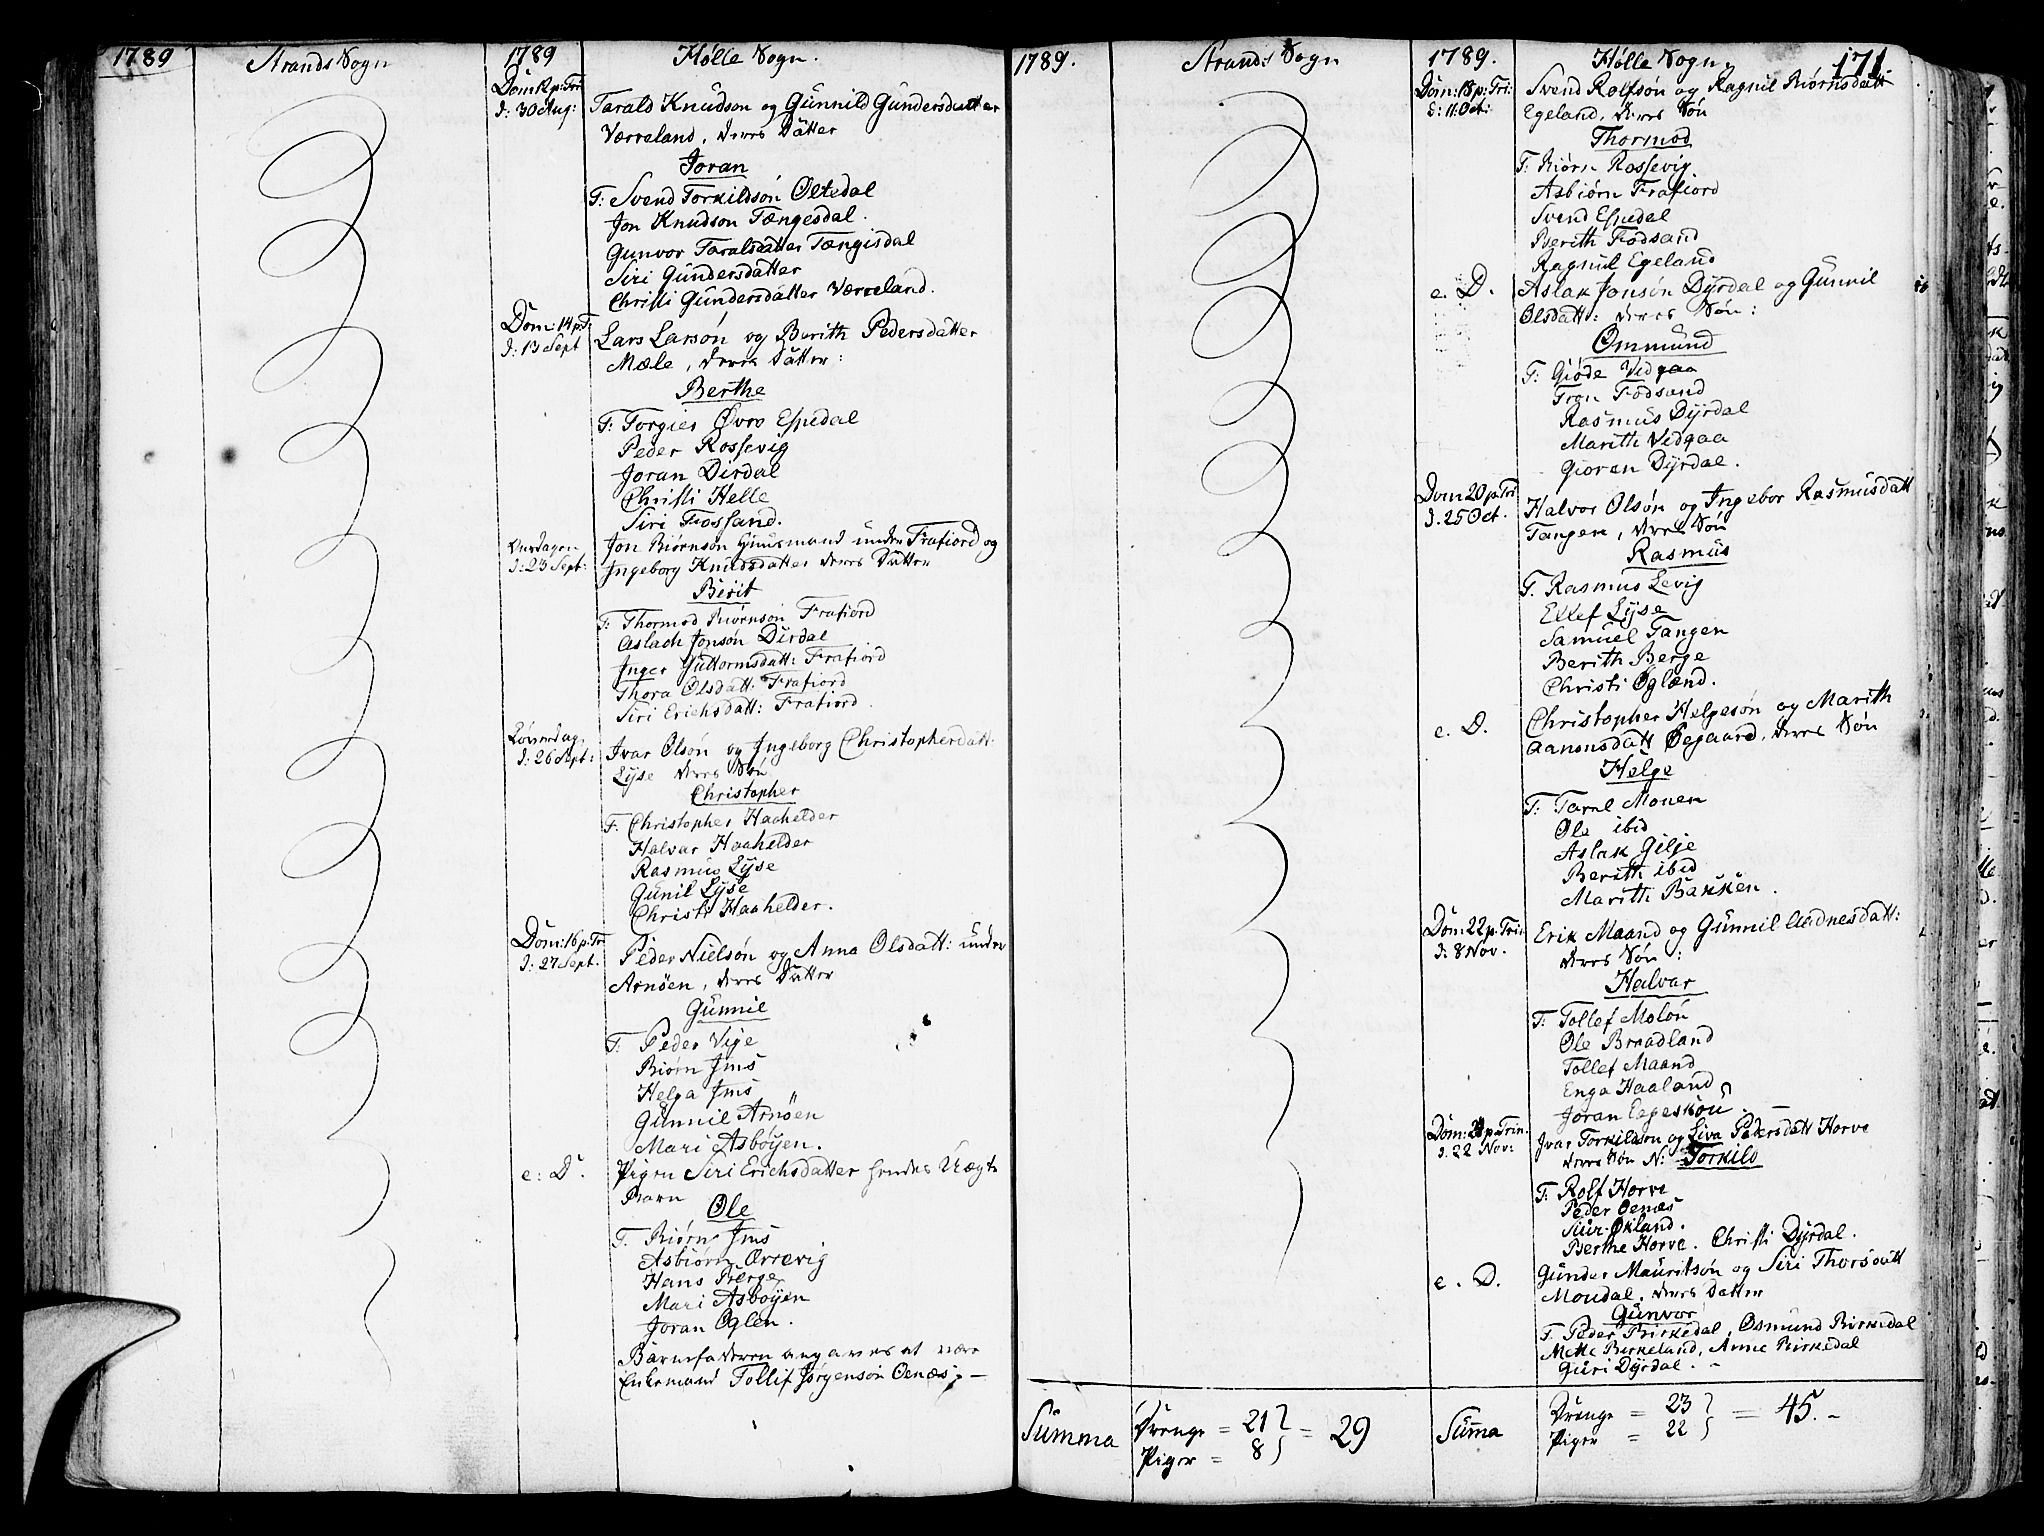 1789
Strands Sogn
1789
Hølle Sogn.
Dom 12 p: Tri
d: 30 Aug:
Tarald Knudson og Gunnild Gundersdatter
Værreland, deres Datter
Joran
F: Svend Torkildsøn Øltedal
Jon Knudson Tængesdal.
Gunvor Taralsdatter Tængisdal
Siri Gundersdatter
Christi Gundersdatter Værreland.
Dom: 14 p: T.
d: 13 Sept
Lars Larsøn og Berith Pedersdatter
Mæle, deres Datter:
Berthe
F: Torgier Øvre Espedal
Peder Rossevig
Joran Dirdal
Christi Helle
Siri Fossand.
Onsdagen
d: 23 Sept:
Jon Biørnsøn Huusmand under Frafiord og
Ingeborg Knudsdatter deres Datter
Berit
F: Thormod Biørnsøn Frafiord
Aslach Jonsøn Dirdal
Inger Guttormsdatt: Frafiord
Thora Olsdatt: Frafiord
Siri Erichsdatt: Frafiord.
Løverdag
d: 26 Sept:
Ivar Olsøn og Ingeborg Christopherdatt:
Lyse deres Søn
Christopher
F. Christopher Haahelder
Halvar Haahelder
Rasmus Lyse
Gunil Lyse
Christi Haahelder.
Dom: 16 p: Tr
d: 27 Sept.
Peder Nielsøn og Anna Olsdatt: under
Arnøen, deres Datter
Gunnil
F. Peder Vige
Biørn Ims
Helga Ims
Gunnil Arnøen
Mari Asbøyen.
e: D.
Pigen Siri Erichsdatter hendes Uægte
Barn
Ole
F. Biørn Ims
Asbiørn Orrevig
Hans Berge
Mari Asbøyen
Joran Oglen.
Barnefaderen angaves at være
Enkemand Tollif Jørgensøn Oenæs. —
1789.
Strands Sogn
1789.
Hølle Sogn
171
Dom: 18 p: Tri:
d: 11 Oct:
Svend Rolfsøn og Ragnil Biørnsdatt
Egeland, deres Søn
Thormod
F: Biørn Rossevig
Asbiørn Frafiord
Svend Espedal
Berith Fodsand
Ragnil Egeland
e. D.
Aslak Jonsøn Dyrdal og Gunnil
Olsdatt: deres Søn:
Ommund
F: Giøde Vedgaa
Tron Fodsand
Rasmus Dyrdal
Marith Vedgaa
Gioran Dyrdal.
Dom 20 p. Tri
d. 25 Oct.
Halvor Olsøn og Ingebor Rasmusdatt
Tangen, deres Søn
Rasmus
F. Rasmus Levig
Ellef Lyse
Samuel Tangen
Berith Berge
Christi Oglænd.
e. D.
Christopher Helgesøn og Marith
Aanonsdatt Øegaard, deres Søn
Helge
F: Tarel Monen
Ole ibid
Aslak Gilje
Berith ibid
Marith Bakken.
Dom: 22 p. Trin
d: 8 Nov.
Erik Maand og Gunnil Aadnesdatt:
deres Søn:
Halvar
F. Tollef Moløn
Ole Bradland
Tollef Maand
Enga Haaland
Joran Eegeskou
Dom: 24 p. Trin.
d. 22 Nov:
Ivar Torkildsøn og Liva Pedersdatt Horve
deres Søn N: Torkild
F. Rolf Horve
Peder Oenæs
Siur Økland.
Berthe Horve. Christi Dyrdal.
e. D.
Gunder Mauritsøn og Siri Thorsdatt
Moudal, deres Datter
Gunvor
F. Peder Birkedal, Osmund Birkedal
Mette Birkeland, Anne Birkedal
Guri Dyrdal. -
Summa
Drenge = 21
Piger = 8
= 29
Summa
Drenge = 23
Piger = 22
= 45. -